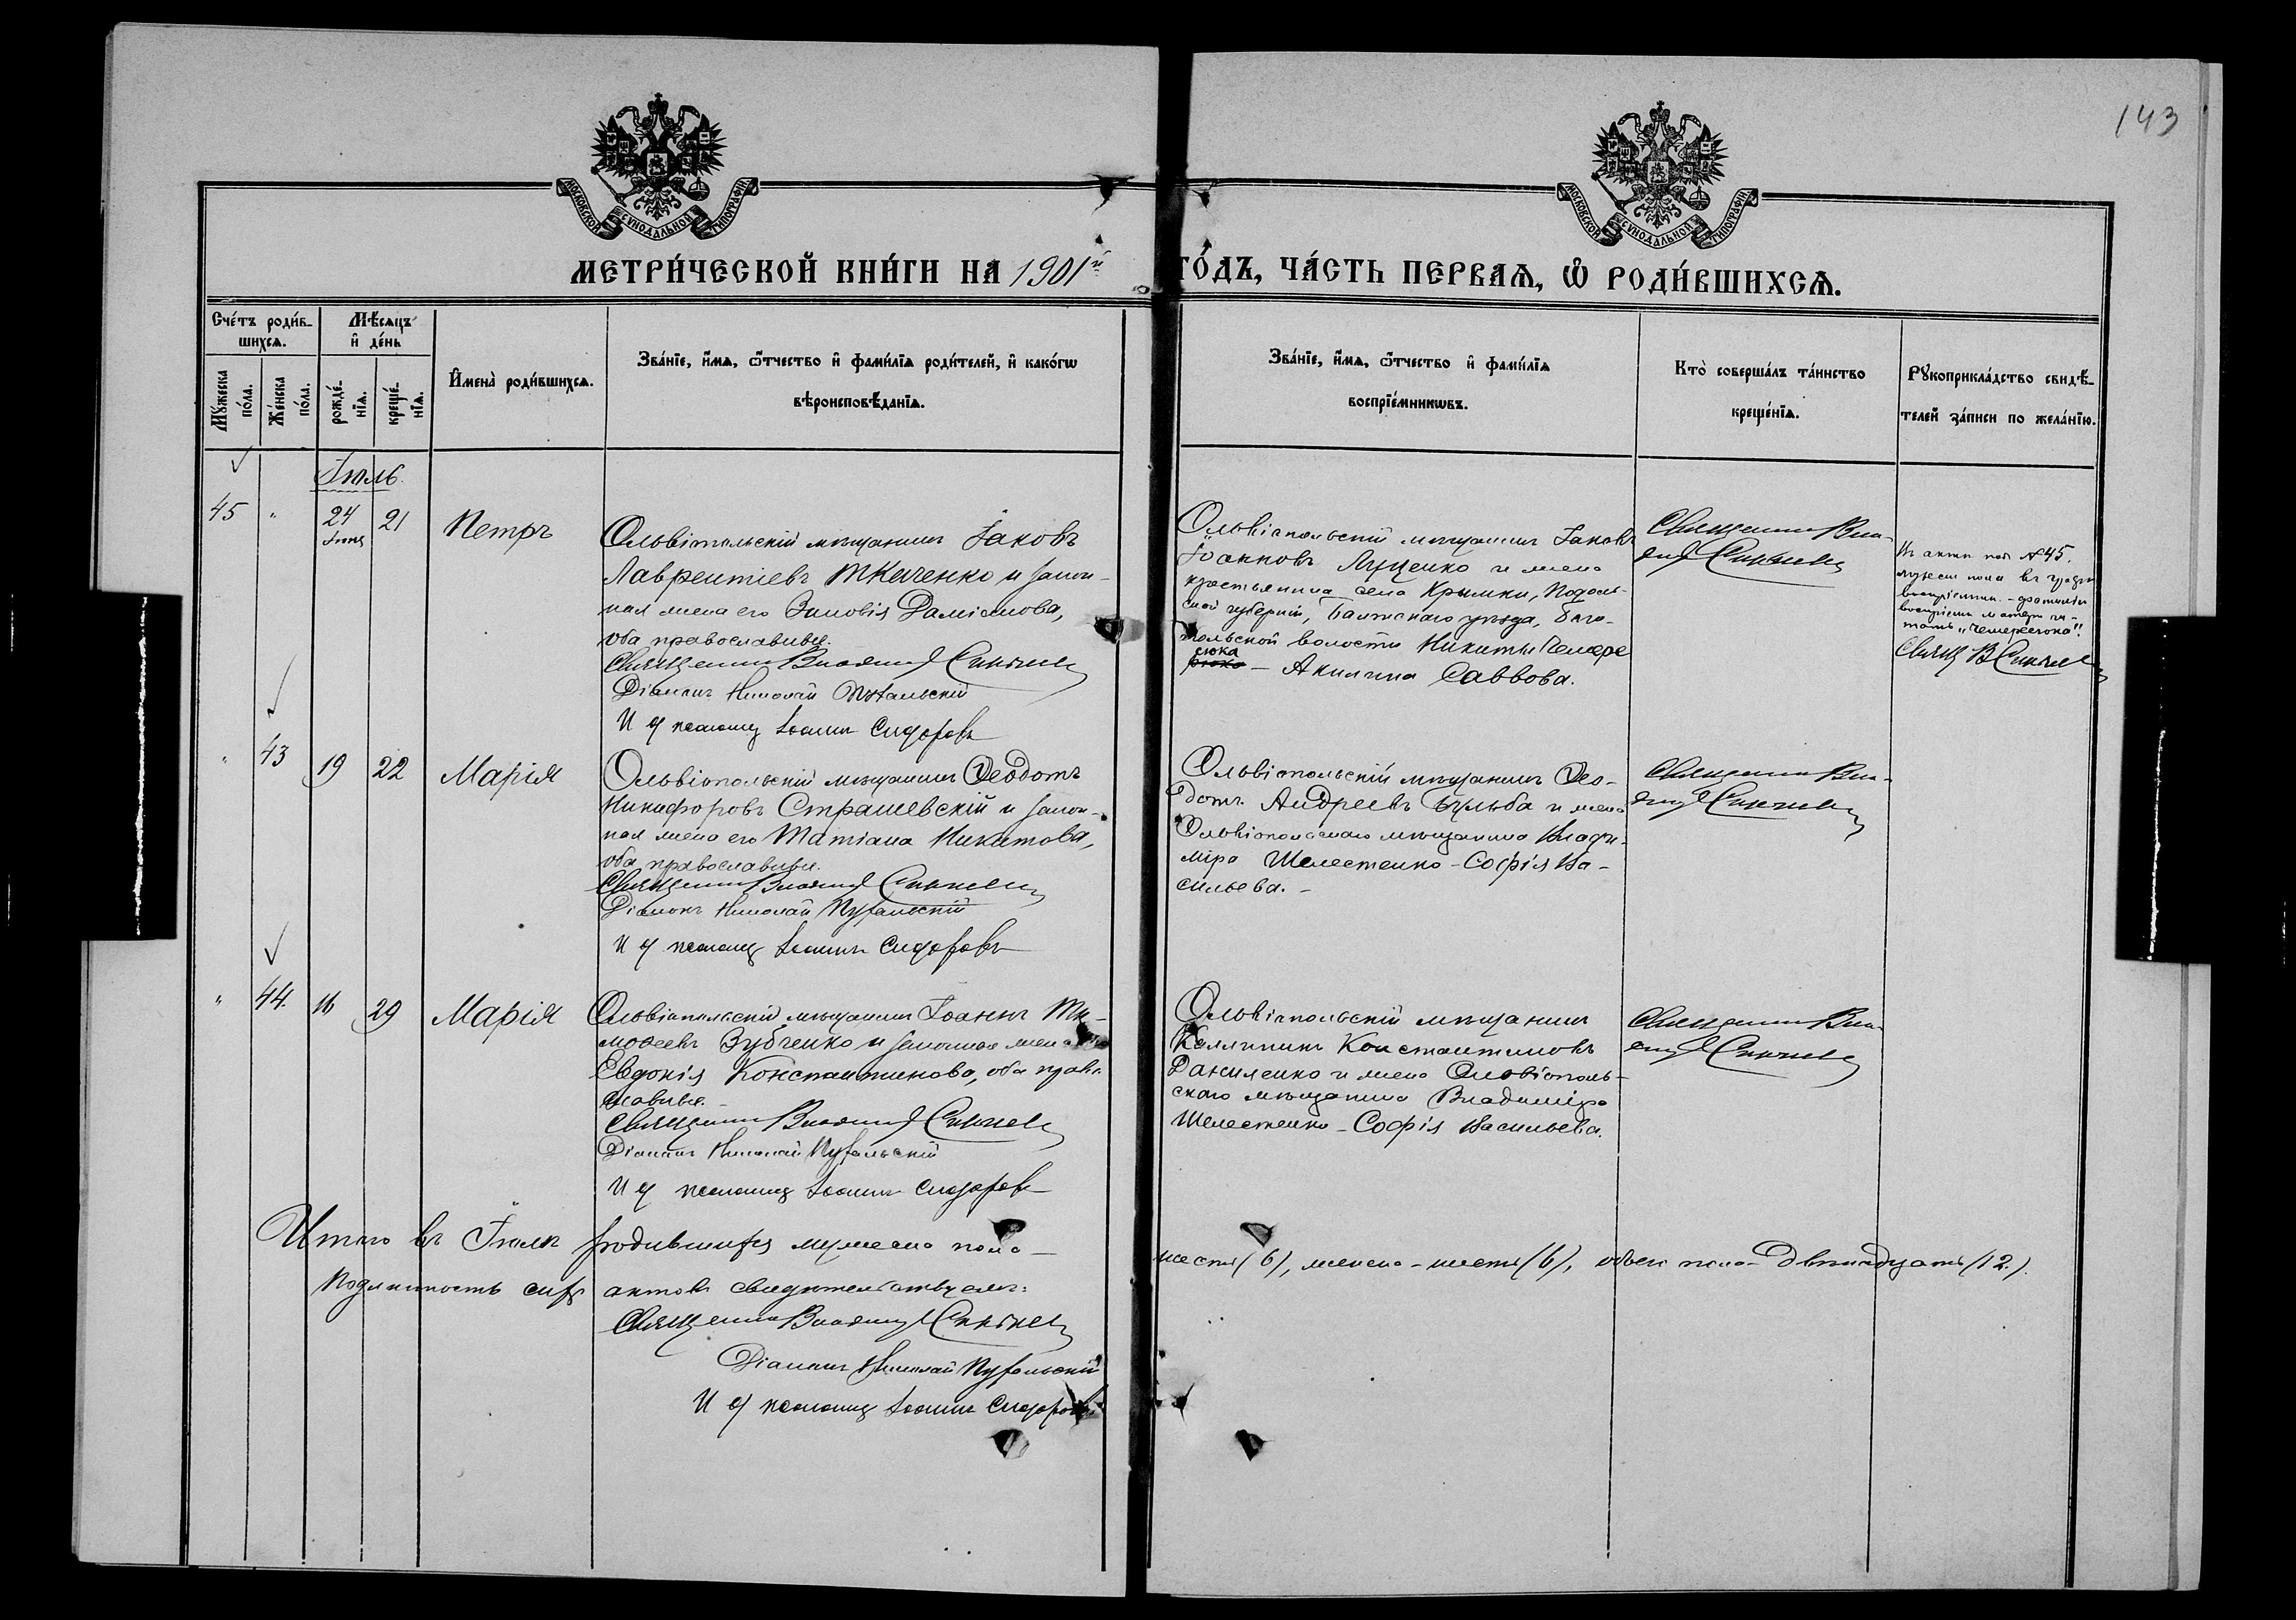 143
МОСКОВСКОЙ СѴНОДАЛЬНОЙ ТИПОГРАФІИ.
МОСКОВСКОЙ СѴНОДАЛЬНОЙ ТИПОГРАФІИ.
МЕТРИ́ЧЕСКОЙ КНИ́ГИ НА 1901й ГО́ДЪ, ЧА́СТЬ ПЕРВАѦ, Ѡ҆ РОДИ́ВШИХСѦ.
Сче́тъ роди́в-
шихсѧ.
Мꙋ́жеска по́ла.
Же́нска по́ла.
Мѣ́сѧцъ
и҆ де́нь
рожде́-
нїѧ.
креще́-
нїѧ.
И҆мена̀ роди́вшихсѧ.
Зва́нїе, и҆́мѧ, ѻ҆́тчество и҆ фами́лїѧ роди́телей, и҆ како́гѡ
вѣроисповѣ́данїѧ.
Зва́нїе, и҆́мѧ, ѻ҆́тчество и҆ фами́лїѧ
воспрїе́мникѡвъ.
Кто̀ соверша́лъ та́инство
креще́нїѧ.
Рꙋкоприкла́дство свидѣ́-
телей за́писи по жела́нїю.
Іюль
45 " 24 Іюня 21 Петръ
Ольвіопольскій мѣщанинъ Іаковъ
Лаврентіевъ Ткаченко и закон-
ная жена его Зиновія Даміанова,
оба православные.
Священникъ Владимір Синьчев
Діаконъ Николай Пузальскій
И д псаломщ Іоаннъ Сидоровъ
Ольвіопольскій мѣщанинъ Іаковъ
Іоанновъ Луценко и жена
крестьянина села Крымки, Подоль-
ской губерніи, Балтскаго уѣзда, Бого-
польской волости Никиты Чемере
сюка
рюка - Акилина Саввова.
Священникъ Вла-
димір
Въ актѣ под №45.
мужеск пола въ графѣ
воспріемник. - фамилію
воспріемн матери чи-
тать „Чемересюка".
Свящ В
" 43 19 22 Марія
Ольвіопольскій мѣщанинъ Ѳеодотъ
Никифоровъ Страшевскій и закон-
ная жена его Татіана Никитова,
оба православные.
Священникъ Владимір
Діаконъ Николай Пузальскій
И д псаломщ Іоаннъ Сидоровъ
Ольвіопольскій мѣщанинъ Ѳео-
дотъ Андреевъ Бульба и жена
Ольвіопольскаго мѣщанина Влади-
міра Шелестенко - Софія Ва-
сильева. -
Священникъ Вла-
димір
" 44. 16 29 Марія
Ольвіопольскій мѣщанинъ Іоаннъ Ти-
моѳеевъ Зубченко и законная жена его
Евдокія Константинова, оба право
славные. -
Священникъ Владимір
Діаконъ Николай Пузальскій
И д псаломщ Іоаннъ Сидоровъ
Ольвіопольскій мѣщанинъ
Каллиникъ Константиновъ
Даниленко и жена Ольвіополь-
скаго мѣщанина Владиміра
Шелестенко - Софія Васильева.
Священникъ Вла-
димір
Итого въ Іюлѣ родившихся мужеска пола - шесть (6), женска - шесть (6), обоего пола - Двѣнадцать (12).
Подлинность сихъ актовъ свидѣтельствуемъ:
Священникъ Владимір
Діаконъ Николай Пузальскій
И д псаломщ Іоаннъ Сидоровъ